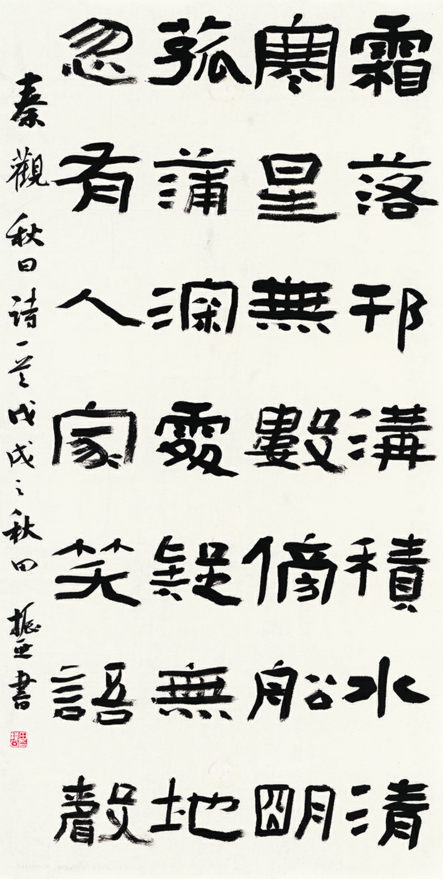 霜落邗溝積水清
寒星無數傍舩朙
菰蒲深處疑無地
忽有人家笑語聲
秦觀秋日詩一首戊戌之秋田振亚書